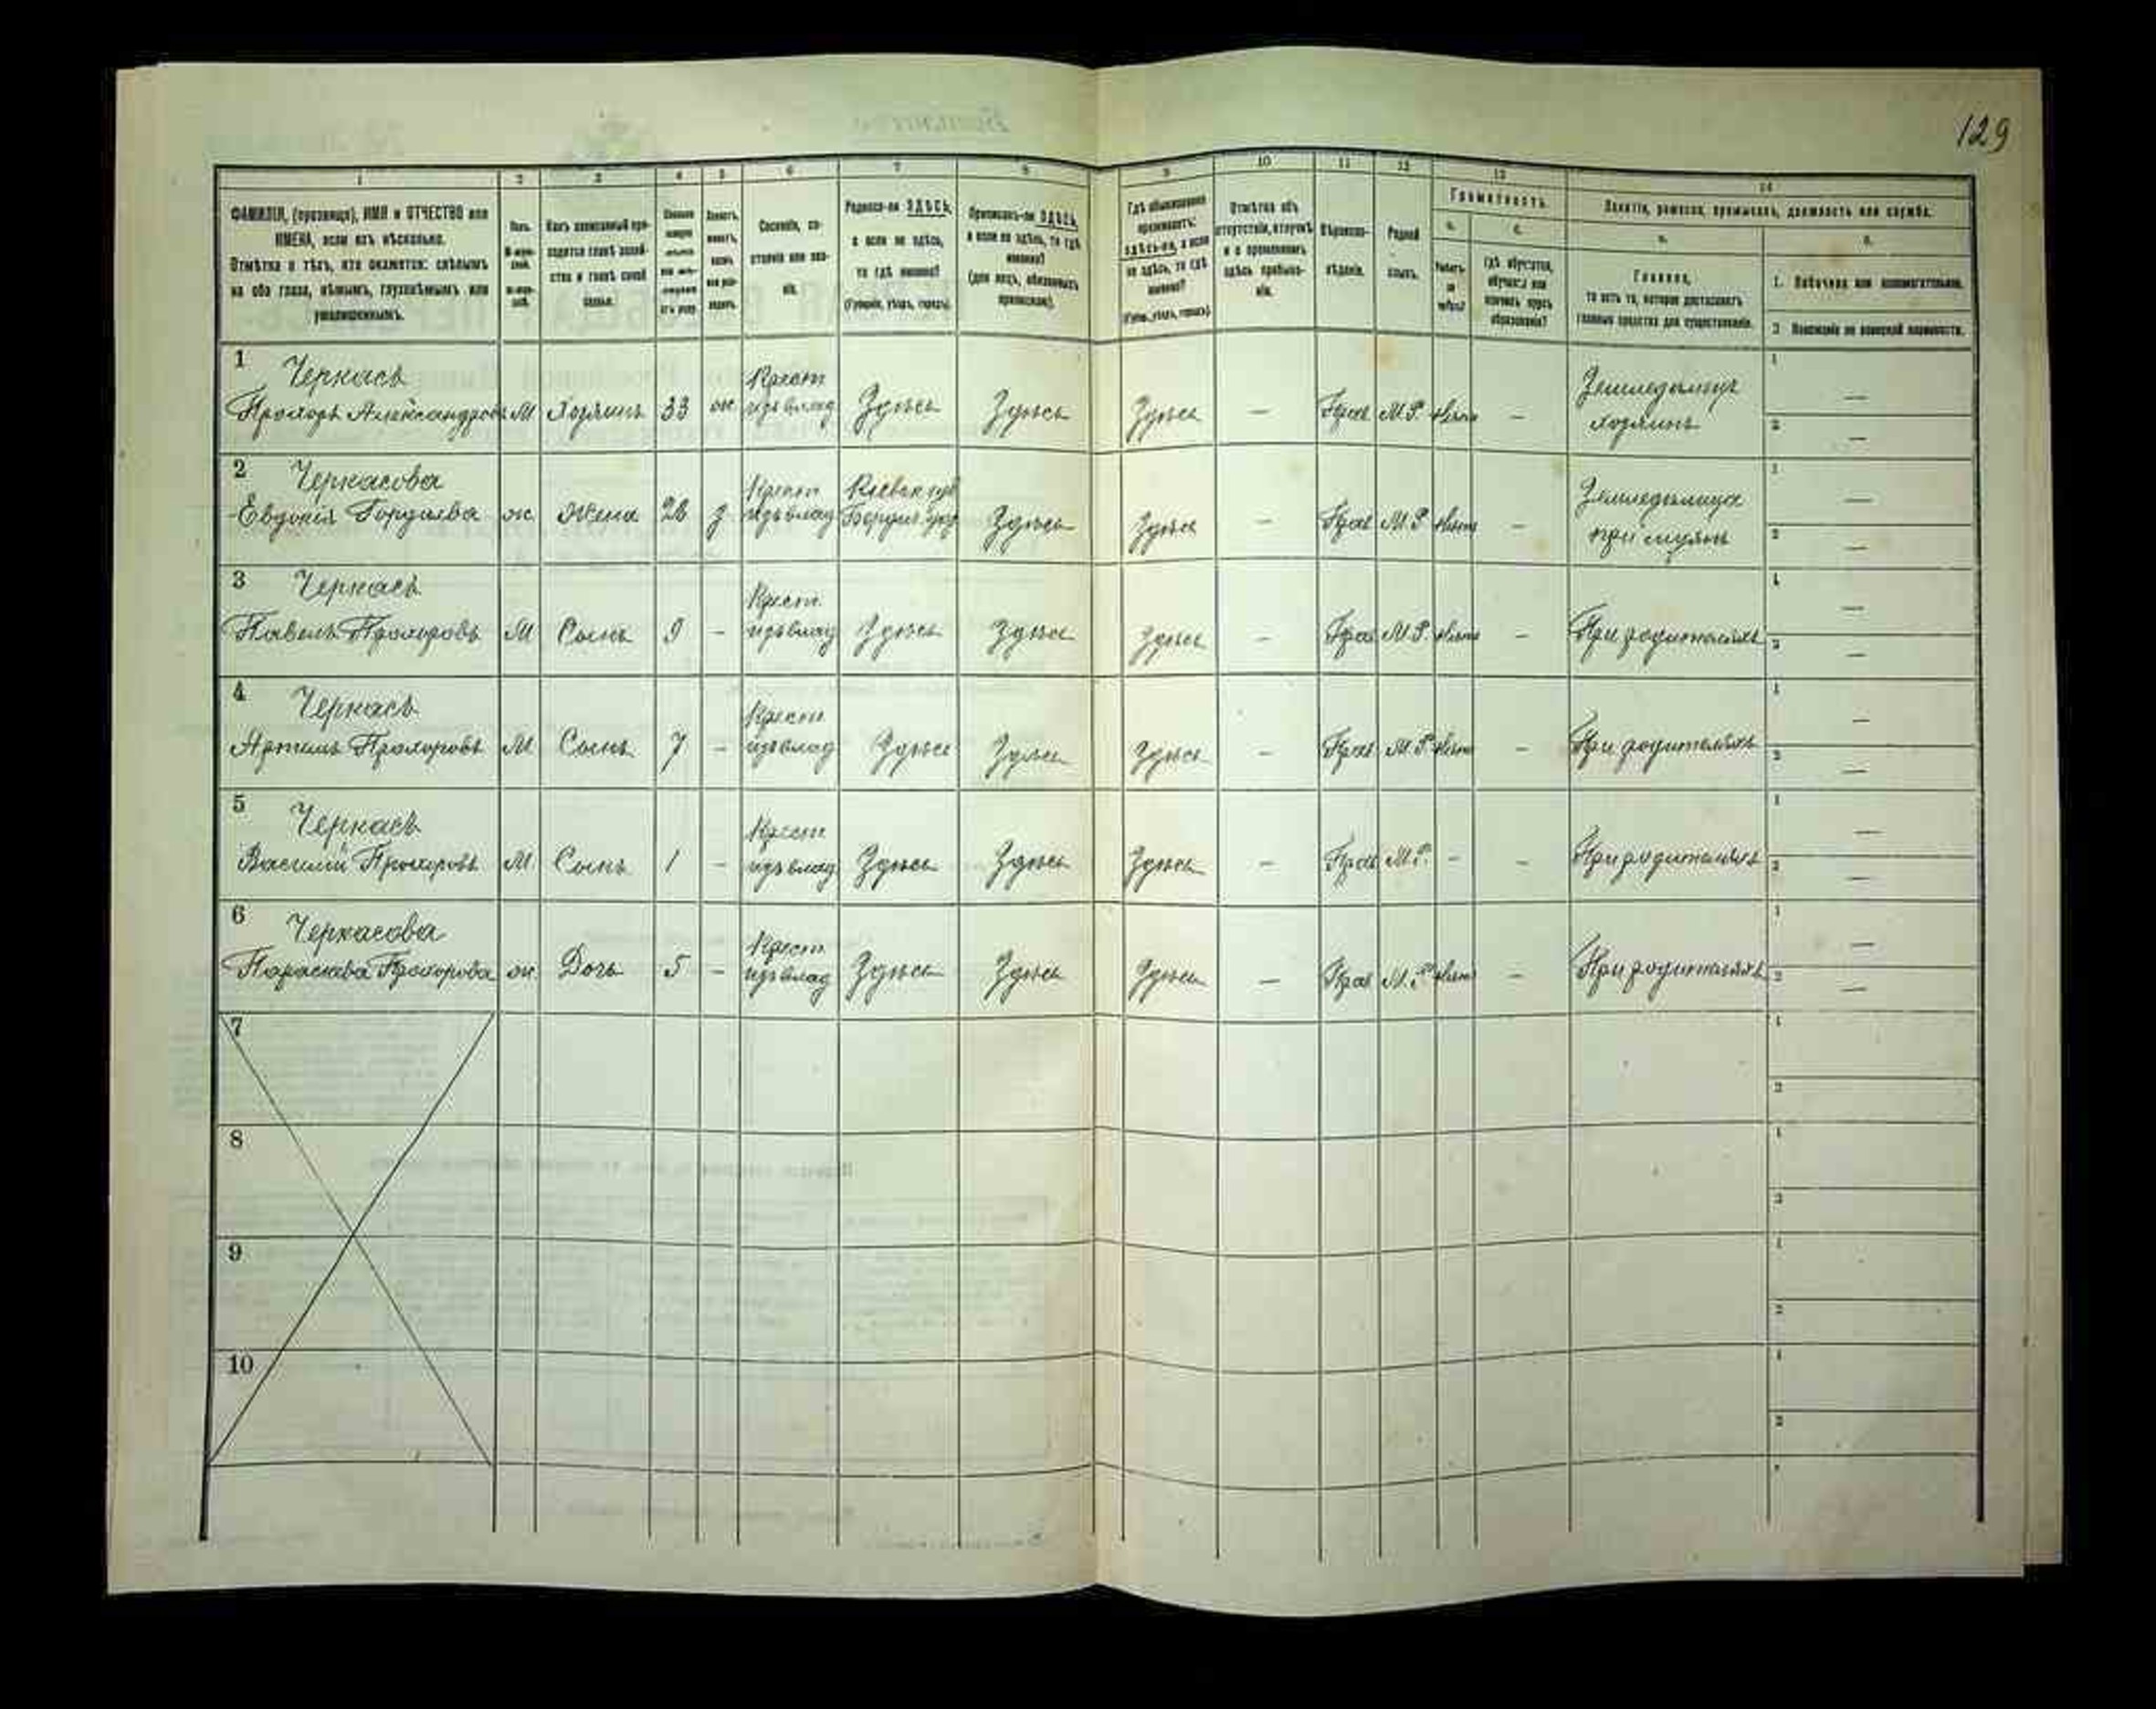 129
1 2 3 4 5 6 7 8 9 10 11 12 13 14
ФАМИЛІЯ, (прозвище), ИМЯ и ОТЧЕСТВО или
ИМЕНА, если ихъ нѣсколько.
Отмѣтка о тѣхъ, кто окажется: слѣпымъ
на оба глаза, нѣмымъ, глухонѣмымъ или
умалишеннымъ.
Полъ.
Какъ записанный при-
ходится главѣ хозяй-
ства и главѣ своей
семьи.
Сословіе, со-
стояніе или зва-
ніе.
Родился-ли ЗДѢСЬ,
а если не здѣсь,
то гдѣ именно?
(Губернія, уѣздъ, городъ).
Приписанъ-ли ЗДѢСЬ,
а если не здѣсь, то гдѣ
именно?
(для лицъ, обязанныхъ
припискою).
Гдѣ обыкновенно
проживаетъ:
здѣсь-ли, а если
не здѣсь, то гдѣ
именно?
(Губер., уѣздъ, городъ).
Отмѣтка объ
отсутствіи, отлучкѣ
и о временномъ
здѣсь пребыва-
ніи.
Вѣроиспо-
вѣданіе.
Родной
языкъ.
Грамотность.
а. б.
Умѣетъ
ли
читать?
Гдѣ обучается,
обучался или
кончилъ курсъ
образованія?
Занятіе, ремесло, промыселъ, должность или служба.
а. б.
Главное,
то есть то, которое доставляетъ
главныя средства для существованія.
1. Побочное или вспомогательное.
2. Положеніе по воинской повинности.
1 Черкасъ
Прохоръ Александровъ М Хозяинъ 33 ж Крест изъ влад Здѣсь Здѣсь Здѣсь — Прав М.Р. нѣтъ — Земледѣлецъ хозяинъ 1 — 2 —
2 Черкасова
Евдокія Гордѣева ж Жена 28 з Крест изъ влад Кіевск губ Бердич уѣз Здѣсь Здѣсь — Прав М.Р нѣтъ — Земледѣлица при мужѣ 1 — 2 —
3 Черкасъ
Павелъ Прохоровъ М Сынъ 9 - Крест изъ влад Здѣсь Здѣсь Здѣсь — Прав М.Р. нѣтъ — При родителяхъ 1 — 2 —
4 Черкасъ
Артемъ Прохоровъ М Сынъ 7 - Крест изъ влад Здѣсь Здѣсь Здѣсь — Прав М.Р. нѣтъ — При родителяхъ 1 — 2 —
5 Черкасъ
Василій Прохоровъ М Сынъ 1 - Крест изъ влад Здѣсь Здѣсь Здѣсь — Прав М.Р. - — При родителяхъ 1 — 2 —
6 Черкасова
Параскева Прохорова ж Дочь 5 - Крест изъ влад Здѣсь Здѣсь Здѣсь — Прав М.Р нѣтъ — При родителяхъ 1 — 2 —
7 1 2
8 1 2
9 1 2
10 1 2